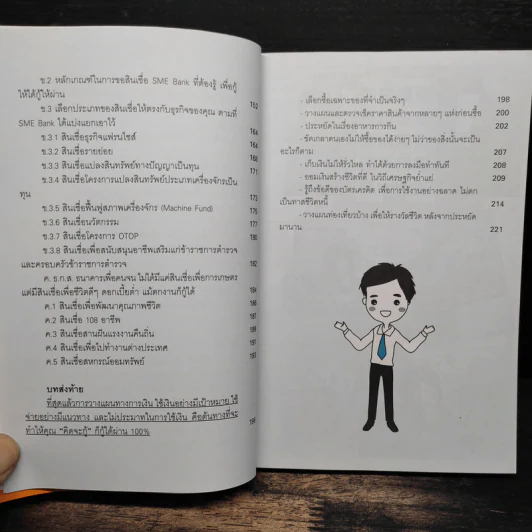 ข.2 หลักเกณฑ์ในการขอสินเชื่อ SME Bank ที่ต้องรู้ เพื่อกู้
ให้ได้กู้ให้ผ่าน
ข.3 เลือกประเภทของสินเชื่อให้ตรงกับธุรกิจของคุณ ตามที่ 162
SME Bank ได้แบ่งแยกเอาไว้
ข.3.1 สินเชื่อธุรกิจแฟรนไชส์ 164
ข.3.2 สินเชื่อรายย่อย 168
ข.3.3 สินเชื่อแปลงสินทรัพย์ทางปัญญาเป็นทุน 171
ข.3.4 สินเชื่อโครงการแปลงสินทรัพย์ประเภทเครื่องจักรเป็น
ทุน 173
ข.3.5 สินเชื่อฟื้นฟูสภาพเครื่องจักร (Machine Fund) 175
ข.3.6 สินเชื่อนวัตกรรม 176
ข.3.7 สินเชื่อโครงการ OTOP 180
ข.3.8 สินเชื่อเพื่อสนับสนุนอาชีพเสริมแก่ข้าราชการตำรวจ
และครอบครัวข้าราชการตำรวจ 182
ค. ธ.ก.ส. ธนาคารเพื่อคนจน ไม่ได้มีแค่สินเชื่อเพื่อการเกษตร
แต่มีสินเชื่อเพื่อชีวิตดีๆ ดอกเบี้ยต่ำ แม้ตกงานก็กู้ได้ 184
ค.1 สินเชื่อเพื่อพัฒนาคุณภาพชีวิต 186
ค.2 สินเชื่อ 108 อาชีพ 187
ค.3 สินเชื่อสานฝันแรงงานคืนถิ่น
ค.4 สินเชื่อเพื่อไปทำงานต่างประเทศ 191
ค.5 สินเชื่อสหกรณ์ออมทรัพย์
บทส่งท้าย
ที่สุดแล้วการวางแผนทางการเงิน ใช้เงินอย่างมีเป้าหมาย ใช้
จ่ายอย่างมีแนวทาง และไม่ประมาทในการใช้เงิน คือต้นทางที่จะ
ทำให้คุณ "คิดจะกู้" ก็กู้ได้ผ่าน 100%
- เลือกซื้อเฉพาะของที่จำเป็นจริงๆ 198
- วางแผนและตรวจเช็คราคาสินค้าจากหลายๆ แห่งก่อนซื้อ 200
- ประหยัดในเรื่องอาหารการกิน 202
- ขัดเกลาตนเองไม่ให้ซื้อของได้ง่ายๆ ไม่ว่าของสิ่งนั้นจะเป็น
อะไรก็ตาม 207
- เก็บเงินไม่ให้รั่วไหล ทำได้ด้วยการลงมือทำทันที 208
- ออมเงินสร้างชีวิตที่ดี ในวิถีเศรษฐกิจย่ำแย่ 209
- รู้ถึงข้อดีของบัตรเครดิต เพื่อการใช้งานอย่างฉลาด ไม่ตก
เป็นทาสชีวิตหนี้ 214
- วางแผนท่องเที่ยวบ้าง เพื่อให้รางวัลชีวิต หลังจากประหยัด
มานาน 221